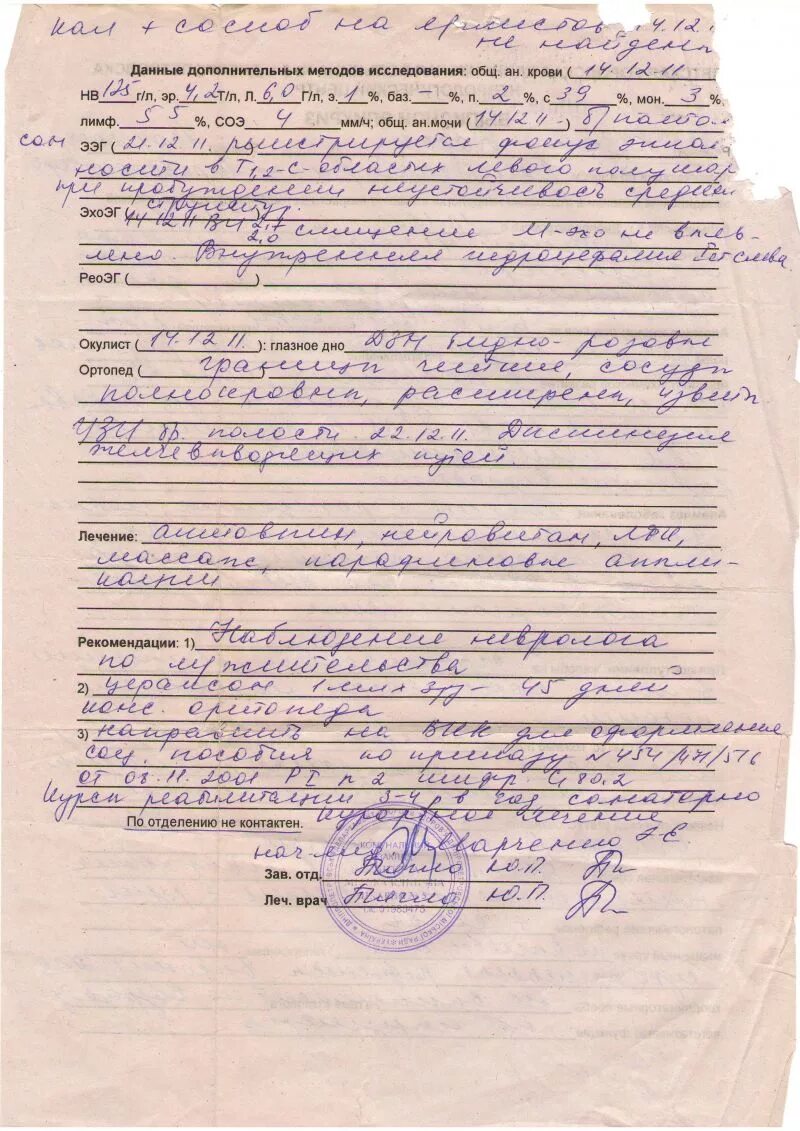 кал + соскоб на 14.12.
не найден
Данные дополнительных методов исследования: общ. ан. крови ( 14.12.11
НВ 125 г/л, эр. 4,2 Т/л, Л. 6,0 Г/л, э. 1 %, баз. — %, п. 2 %, с 39 %, мон. 3 %,
лимф. 55 %, СОЭ 4 мм/ч; общ. ан.мочи ( 14.12.11 ) б/патол
сон
ЭЭГ ( 21.12.11 регистрируется фокус
в Т1,2-С-областях левого полушар
при пробуждении неустойчивость средин
структур.
ЭхоЭГ ( 14.12.11 ВИ 2,7
2,0 смещение М-эхо не выяв-
лено. Внутренняя гидроцефалия слева.
РеоЭГ ( )
Окулист ( 14.12.11. ): глазное дно ДЗН бледно-розовые
Ортопед ( границы четкие, сосуды
полнокровны, расширены, извиты
УЗИ бр. полости 22.12.11. Дискинезия
желчевыводящих путей.
Лечение: актовегин, нейровитан, ЛФК,
массаж, парафиновые аппли-
кации
Рекомендации: 1) Наблюдение невролога
по м/жительства
2) цераксон 1 мл х 3 р/д — 45 дней
конс. ортопеда
3) направить на ВКК для оформления
соц. пособия по приказу N 454/471/516
от 08.11.2001 РI п 2 шифр G 80.2
Курсы реабилитации 3-4 р в год санаторно
курортное лечение
По отделению не контактен.
нач. мед.
Зав. отд. Ю.П.
Леч. врач Ю.П.